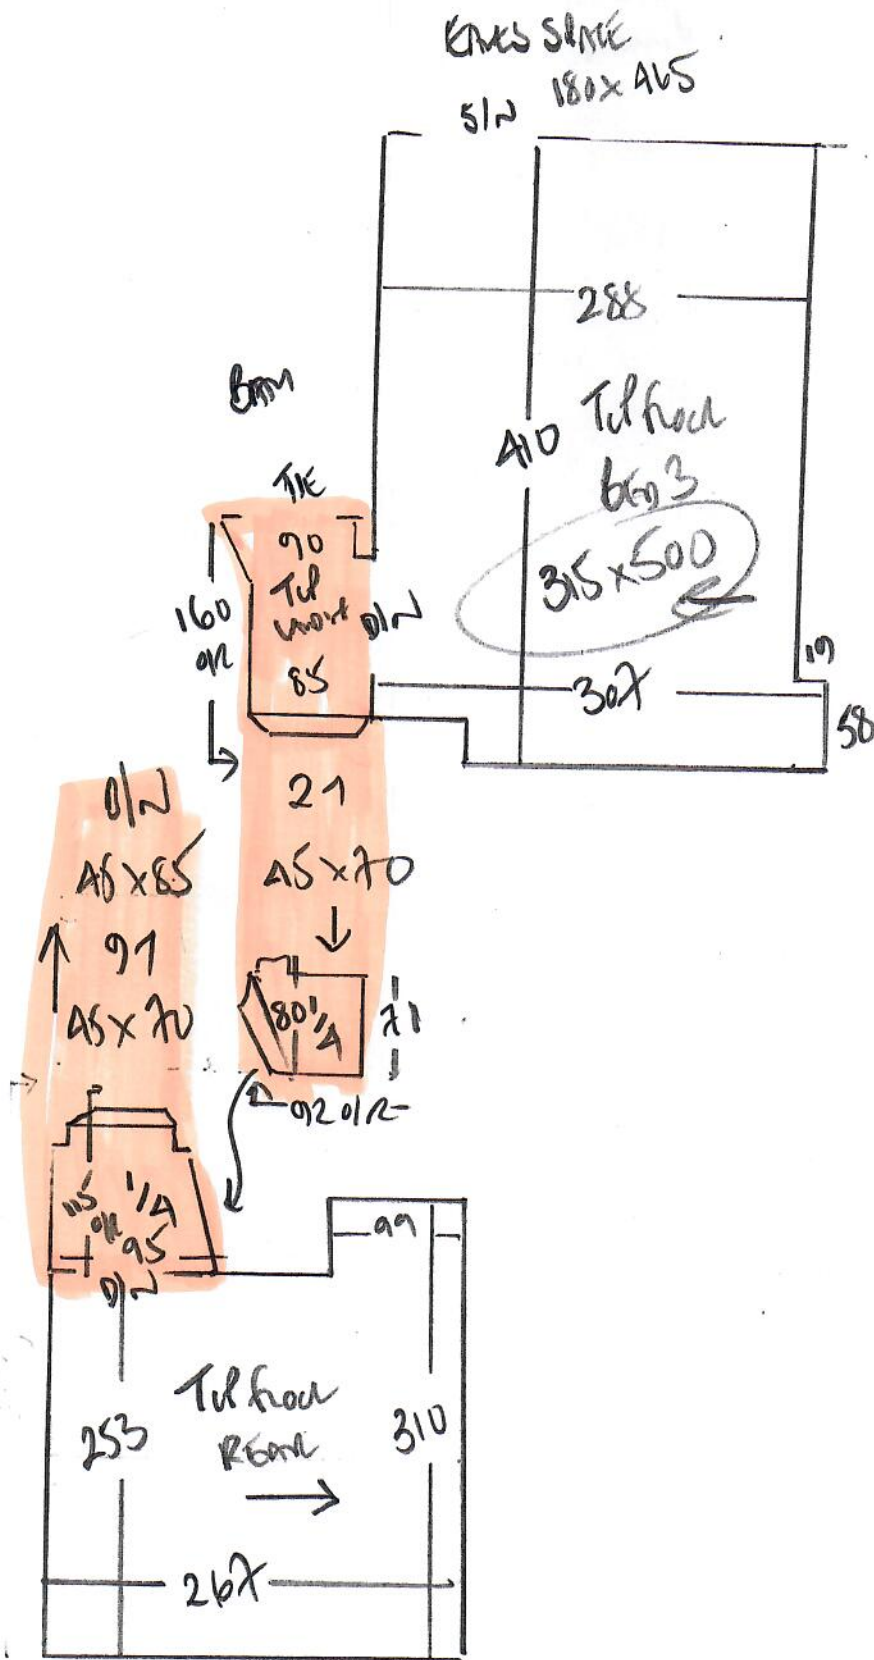 EAVES SPACE
180 x 465
S/N
288
BATH
410
Top Floor
BED 3
315 x 500
TIE
90
Top
160
O/R
D/N
85
307
19
58
D/N
45 x 85
91
45 x 70
21
45 x 70
80 1/4
71
92 O/R
115 1/4
O/R
95
D/N
99
253
Top Floor
REAR
310
267